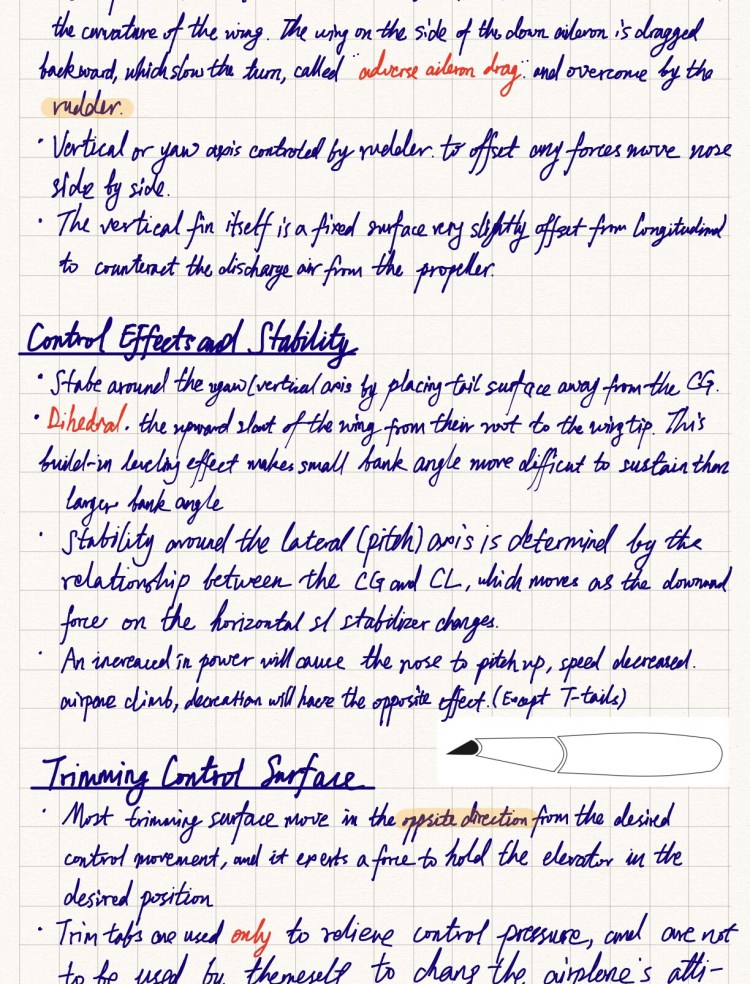 the curvature of the wing. The wing on the side of the down aileron is dragged
backward, which slow the turn, called "adverse aileron drag". and overcome by the
rudder.
· Vertical or yaw axis controled by rudder. to offset any forces move nose
side by side.
· The vertical fin itself is a fixed surface very slightly offset from longitudinal
to counteract the discharge air from the propeller.
Control Effects and Stability
· Stabe around the yaw (vertical) axis by placing tail surface away from the CG.
· Dihedral. the upward slant of the wing from their root to the wing tip. This
build-in leveling effect makes small bank angle more difficult to sustain than
larger bank angle
· Stability around the lateral (pitch) axis is determind by the
relationship between the CG and CL, which moves as the downward
force on the horizontal stabilizer changes.
· An increased in power will cause the nose to pitch up, speed decreased.
airpane climb, will have the opposite effect. (Except T-tails)
Trimming Control Surface
· Most trimming surface move in the oppsite direction from the desired
control movement, and it exerts a force to hold the elevator in the
desired position
· Trim tabs are used only to relieve control pressure, and are not
to be used by themeself to chang the airplane's atti-